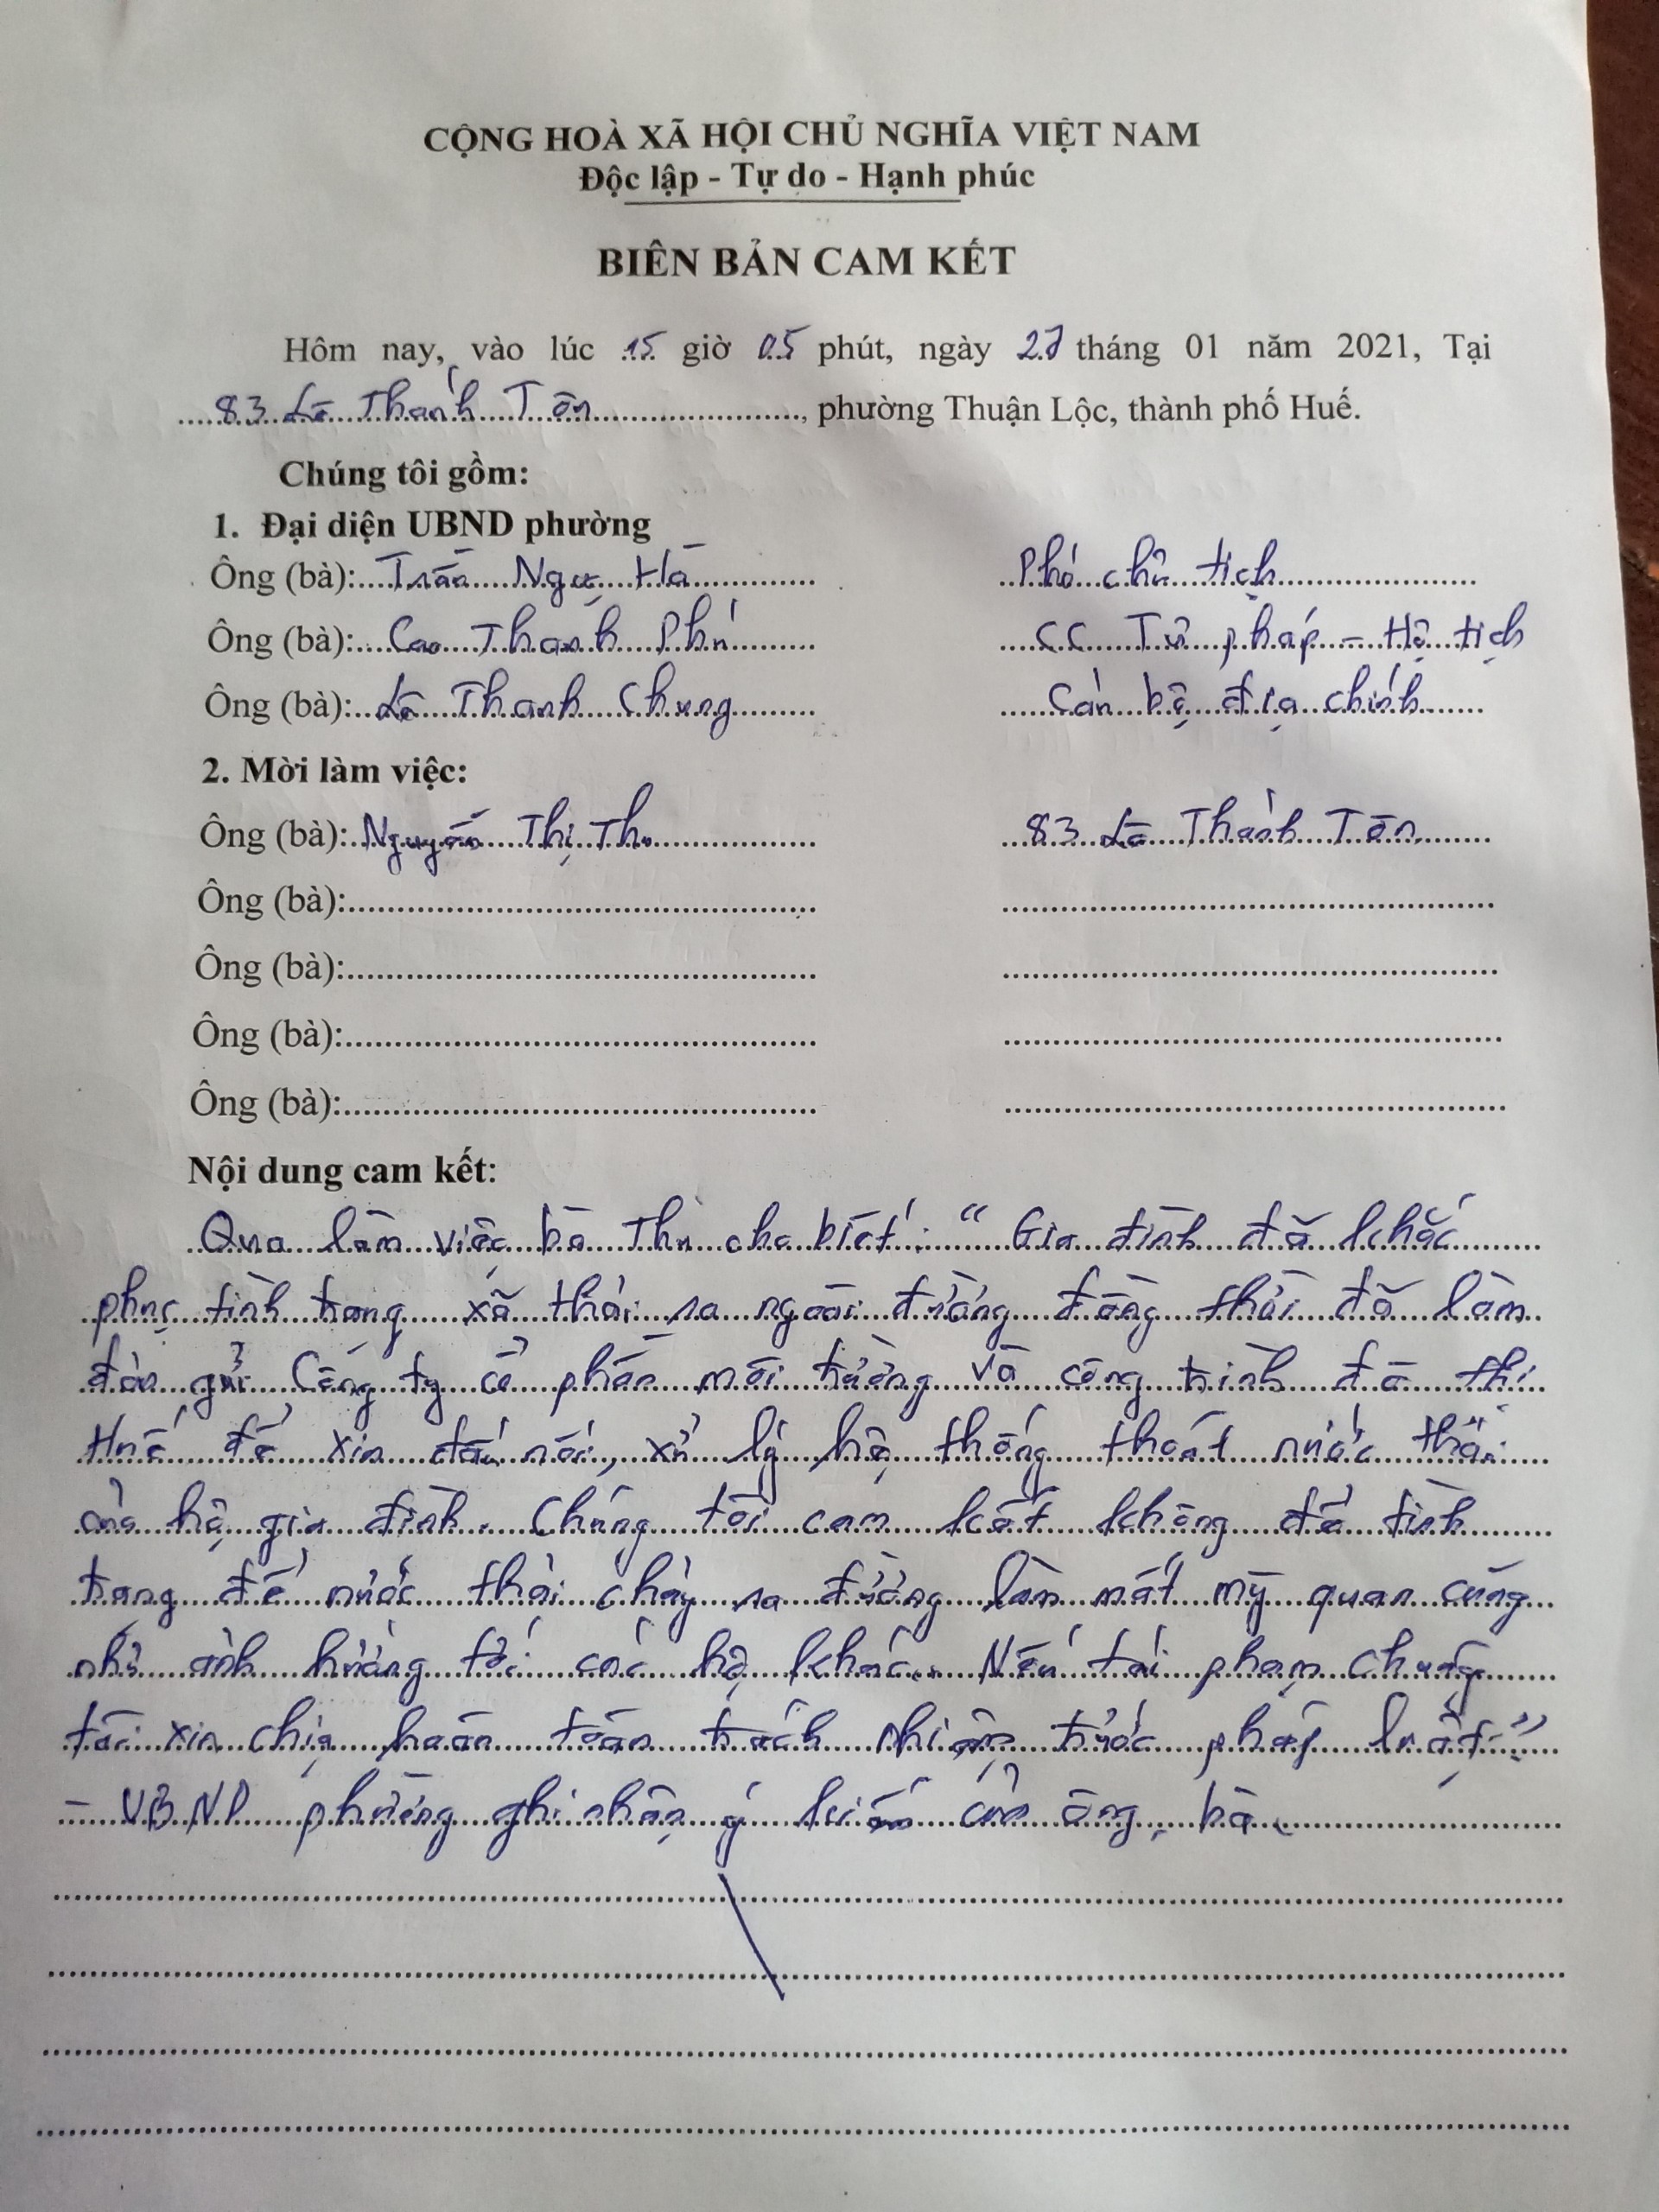 CỘNG HOÀ XÃ HỘI CHỦ NGHĨA VIỆT NAM
Độc lập - Tự do - Hạnh phúc
BIÊN BẢN CAM KẾT
Hôm nay, vào lúc 15 giờ 05 phút, ngày 27 tháng 01 năm 2021, Tại
83 Lê Thánh Tôn, phường Thuận Lộc, thành phố Huế.
Chúng tôi gồm:
1. Đại diện UBND phường
Ông (bà): Trần Ngự Hà Phó chủ tịch
Ông (bà): Cao Thanh Phú CC Tư pháp - Hộ tịch
Ông (bà): Lê Thanh Chung Cán bộ địa chính
2. Mời làm việc:
Ông (bà): Nguyễn Thị Thu 83 Lê Thánh Tôn
Ông (bà):
Ông (bà):
Ông (bà):
Ông (bà):
Nội dung cam kết:
Qua làm việc bà Thu cho biết: "Gia đình đã khắc
phục tình trạng xả thải ra ngoài đường đồng thời đã làm
đơn gửi Công ty cổ phần môi trường và công trình đô thị
Huế để xin đấu nối, xử lý hệ thống thoát nước thải
của hộ gia đình. Chúng tôi cam kết không để tình
trạng để nước thải chảy ra đường làm mất mỹ quan cũng
như ảnh hưởng tới các hộ khác. Nếu tái phạm chúng
tôi xin chịu hoàn toàn trách nhiệm trước pháp luật"
- UBND phường ghi nhận ý kiến của ông, bà.